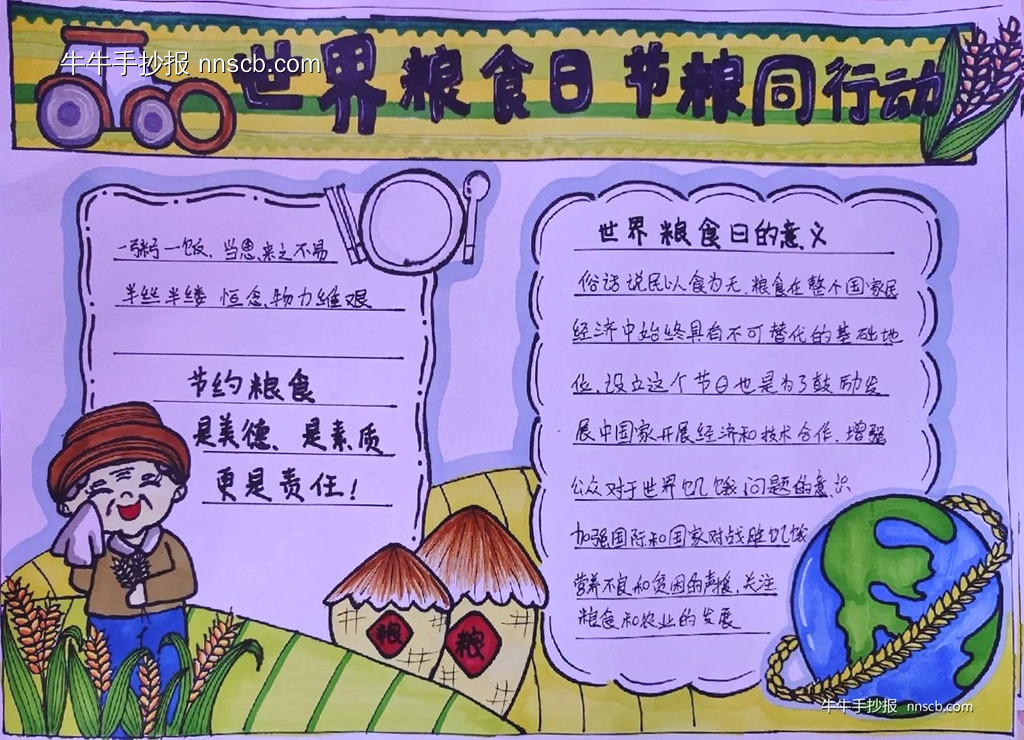 牛牛手抄报 nnscb.com
世界粮食日 节粮同行动
一粥一饭,当思来之不易
半丝半缕 恒念物力维艰
节约粮食
是美德、是素质
更是责任!
世界粮食日的意义
俗话说民以食为天,粮食在整个国家民
经济中始终具有不可替代的基础地
位,设立这个节日也是为了鼓励发
展中国家开展经济和技术合作,增强
公众对于世界饥饿问题的意识
加强国际和国家对战胜饥饿
营养不良和贫困的声援,关注
粮食和农业的发展
粮
粮
牛牛手抄报 nnscb.com